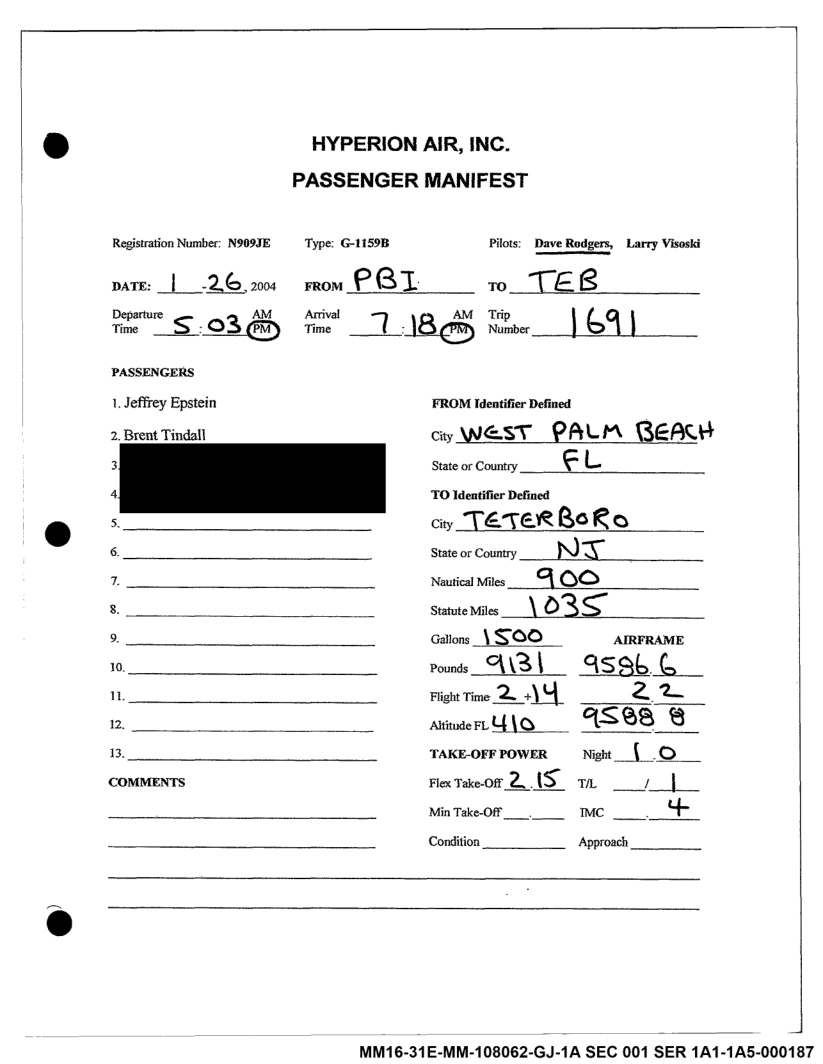 HYPERION AIR, INC.
PASSENGER MANIFEST
Registration Number: N909JE Type: G-1159B Pilots: Dave Rodgers, Larry Visoski
DATE: 1 - 26, 2004 FROM PBI TO TEB
Departure Time 5 : 03 AM PM Arrival Time 7 : 18 AM PM Trip Number 1691
PASSENGERS
1. Jeffrey Epstein FROM Identifier Defined
2. Brent Tindall City WEST PALM BEACH
3. State or Country FL
4. TO Identifier Defined
5. City TETERBORO
6. State or Country NJ
7. Nautical Miles 900
8. Statute Miles 1035
9. Gallons 1500 AIRFRAME
10. Pounds 9131 9586.6
11. Flight Time 2 + 14 2.2
12. Altitude FL 410 9588.8
13. TAKE-OFF POWER Night 1.0
COMMENTS Flex Take-Off 2.15 T/L / 1
Min Take-Off . IMC . 4
Condition Approach
MM16-31E-MM-108062-GJ-1A SEC 001 SER 1A1-1A5-000187